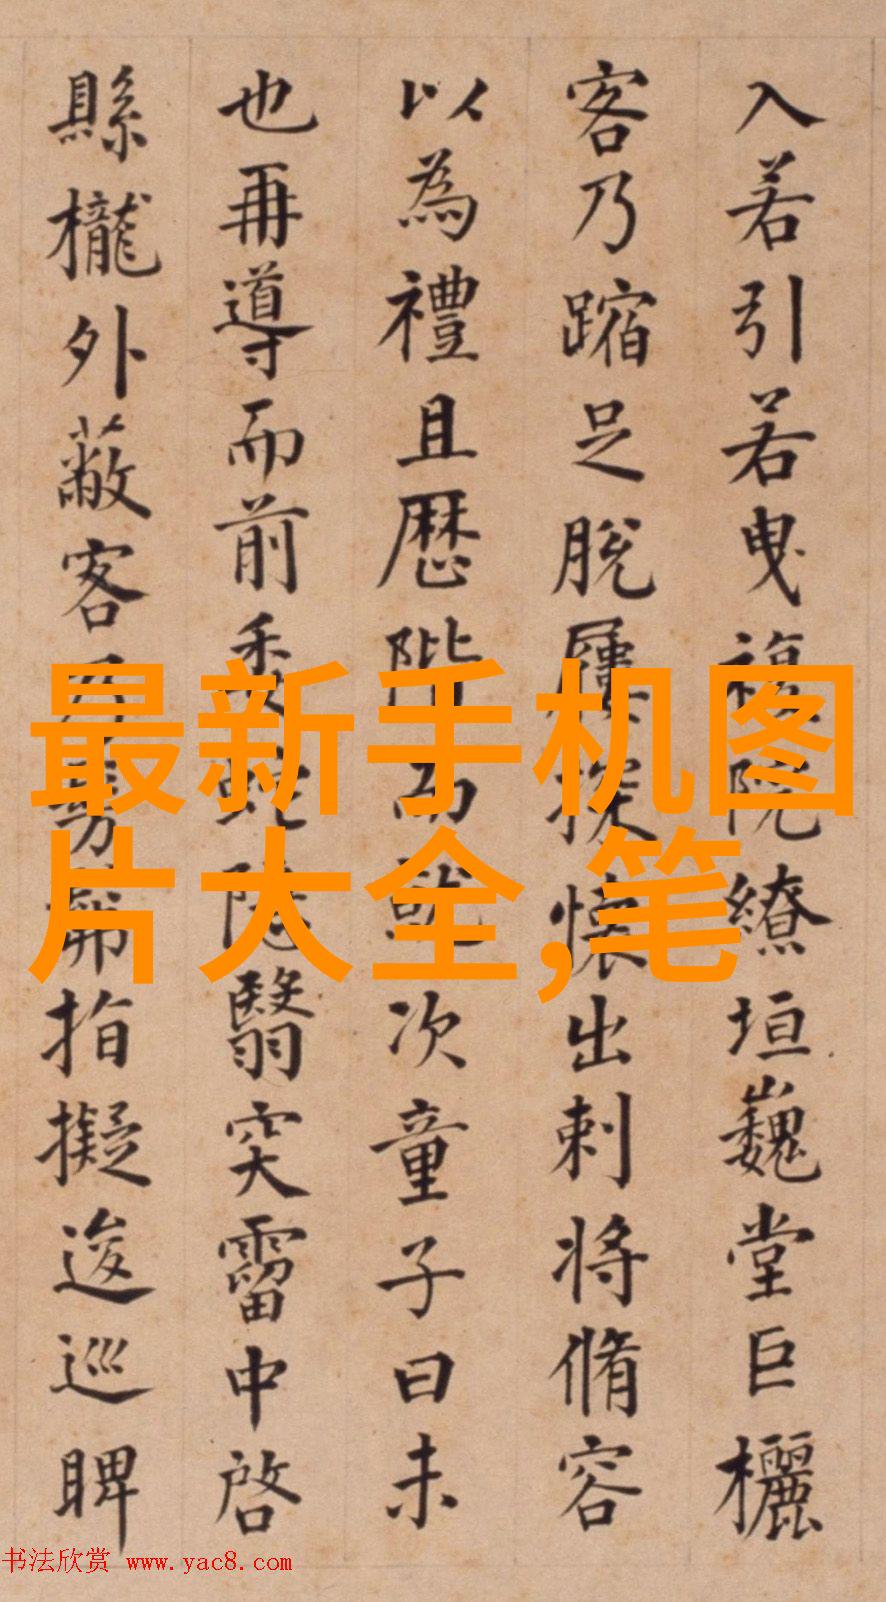 入若引若曳複院繚垣巍堂巨欐
客乃蹜足脫屨探懷出刺将脩容
以為禮且歷階而就次童子曰未
也再導而前委蛇陟翳突霤中啓
縣櫳外蔽客乃旁睨指擬逡巡睥
最新手机图
片大全,笔
书法欣赏 www.yac8.com